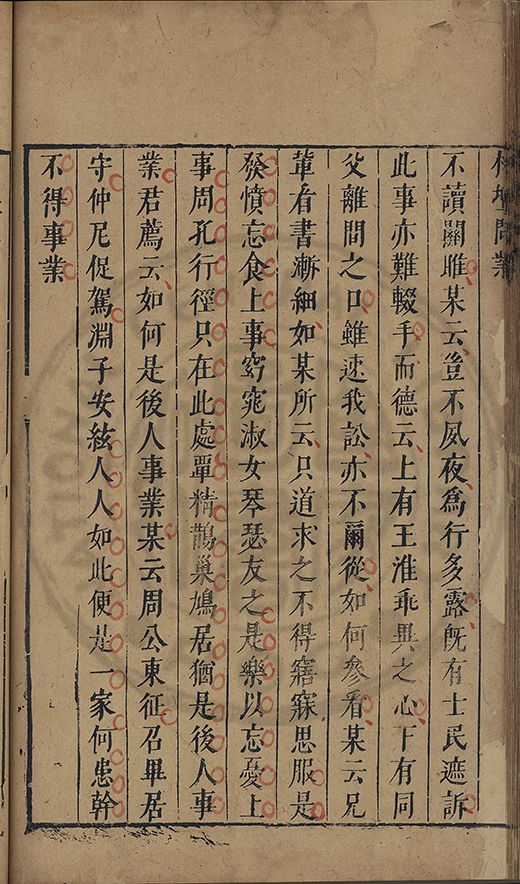 榕壇問業
不讀關雎某云豈不夙夜為行多露既有士民遮訴
此事亦難輟手而德云上有王淮乖異之心下有同
父離間之口雖速我訟亦不爾從如何參看某云兄
輩看書漸細如某所云只道求之不得寤寐思服是
發憤忘食上事窈窕淑女琴瑟友之是樂以忘憂上
事周孔行徑只在此處覃精鵲巢鳩居猶是後人事
業君薦云如何是後人事業某云周公東征召畢居
守仲尼促駕淵子安絃人人如此便是一家何患幹
不得事業